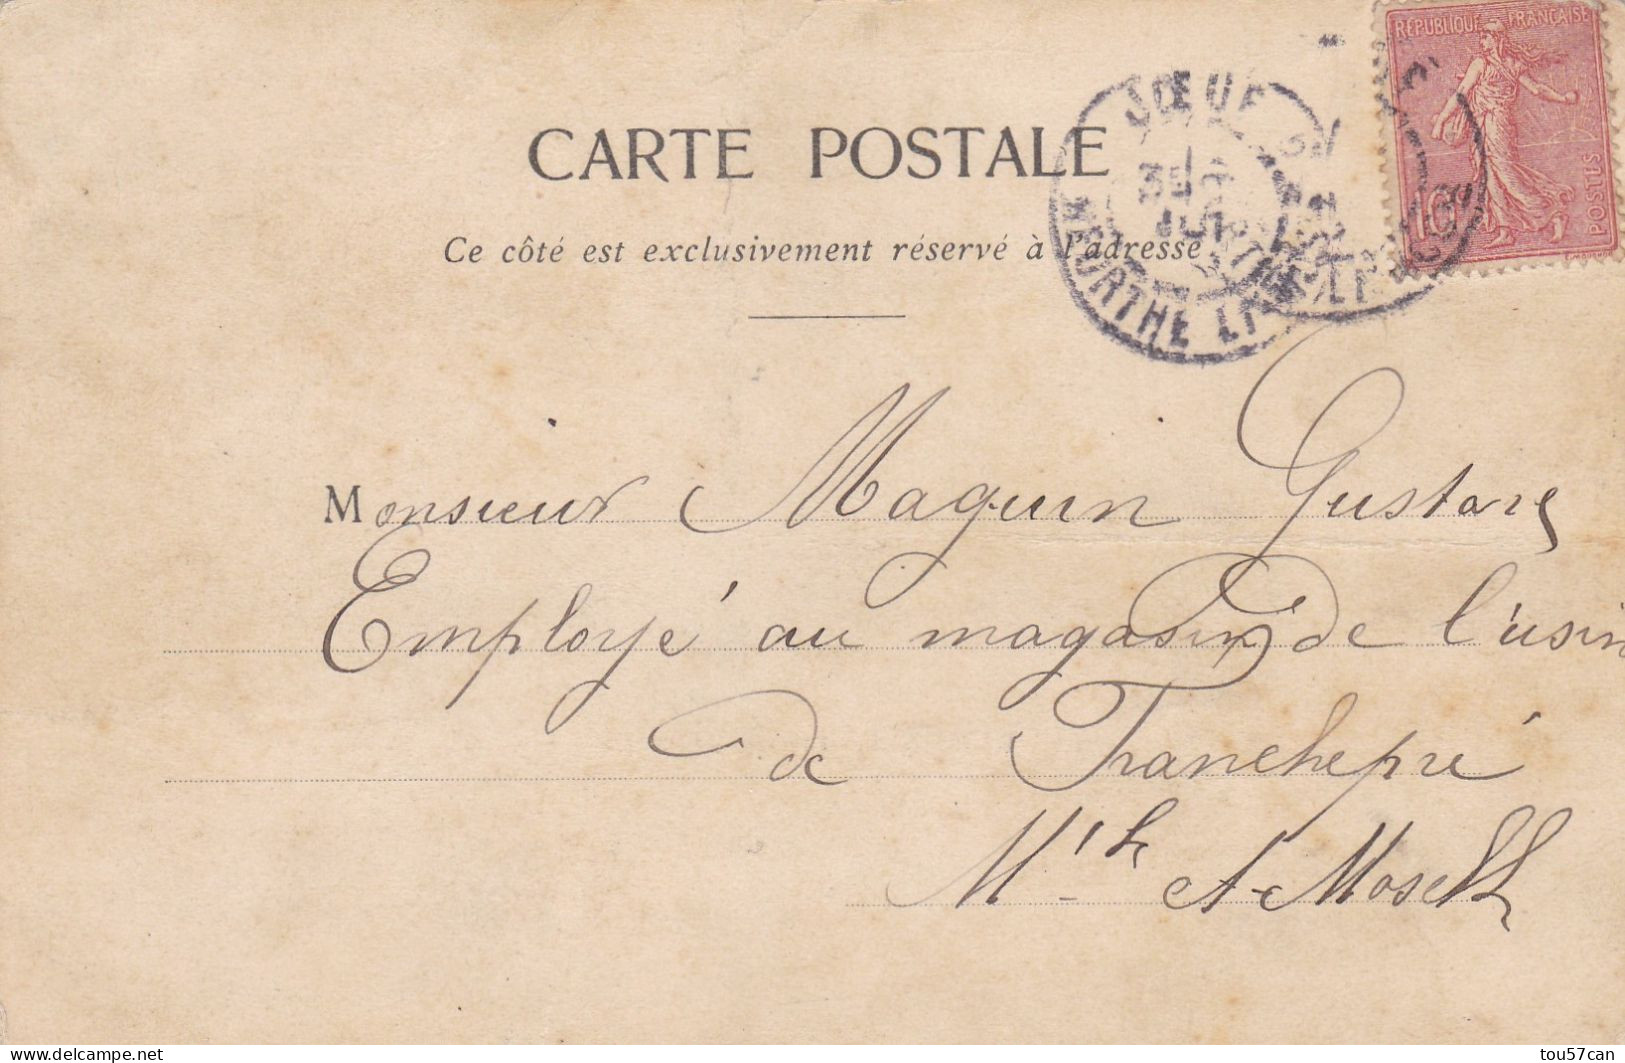 RÉPUBLIQUE FRANÇAISE
POSTES
10
JŒUF
3E
MEURTHE
CARTE POSTALE
Ce côté est exclusivement réservé à l'adresse
Monsieur Maguin Gustave
Employé au magasin de l'usin
de Franchepré
Mthe et Moselle
tou57can
delcampe.net